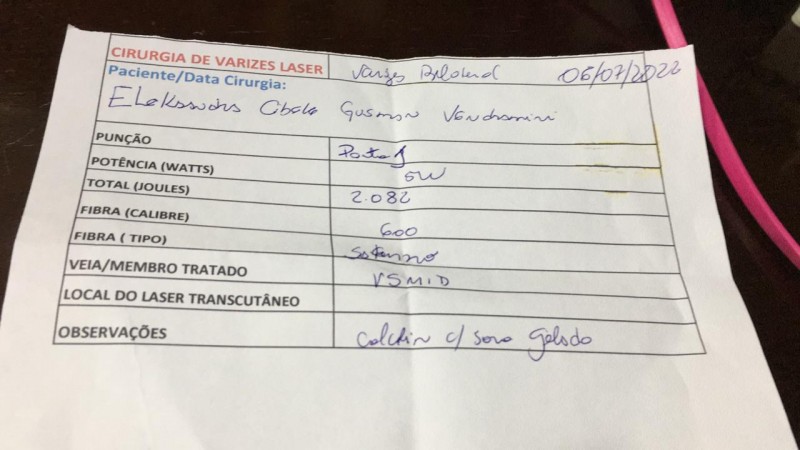 CIRURGIA DE VARIZES LASER Varizes Bilateral 06/07/2022
Paciente/Data Cirurgia:
Gusman Vendramini
PUNÇÃO
POTÊNCIA (WATTS) 5W
TOTAL (JOULES) 2.082
FIBRA (CALIBRE) 600
FIBRA ( TIPO)
VEIA/MEMBRO TRATADO VSMID
LOCAL DO LASER TRANSCUTÂNEO
OBSERVAÇÕES c/ soro gelado